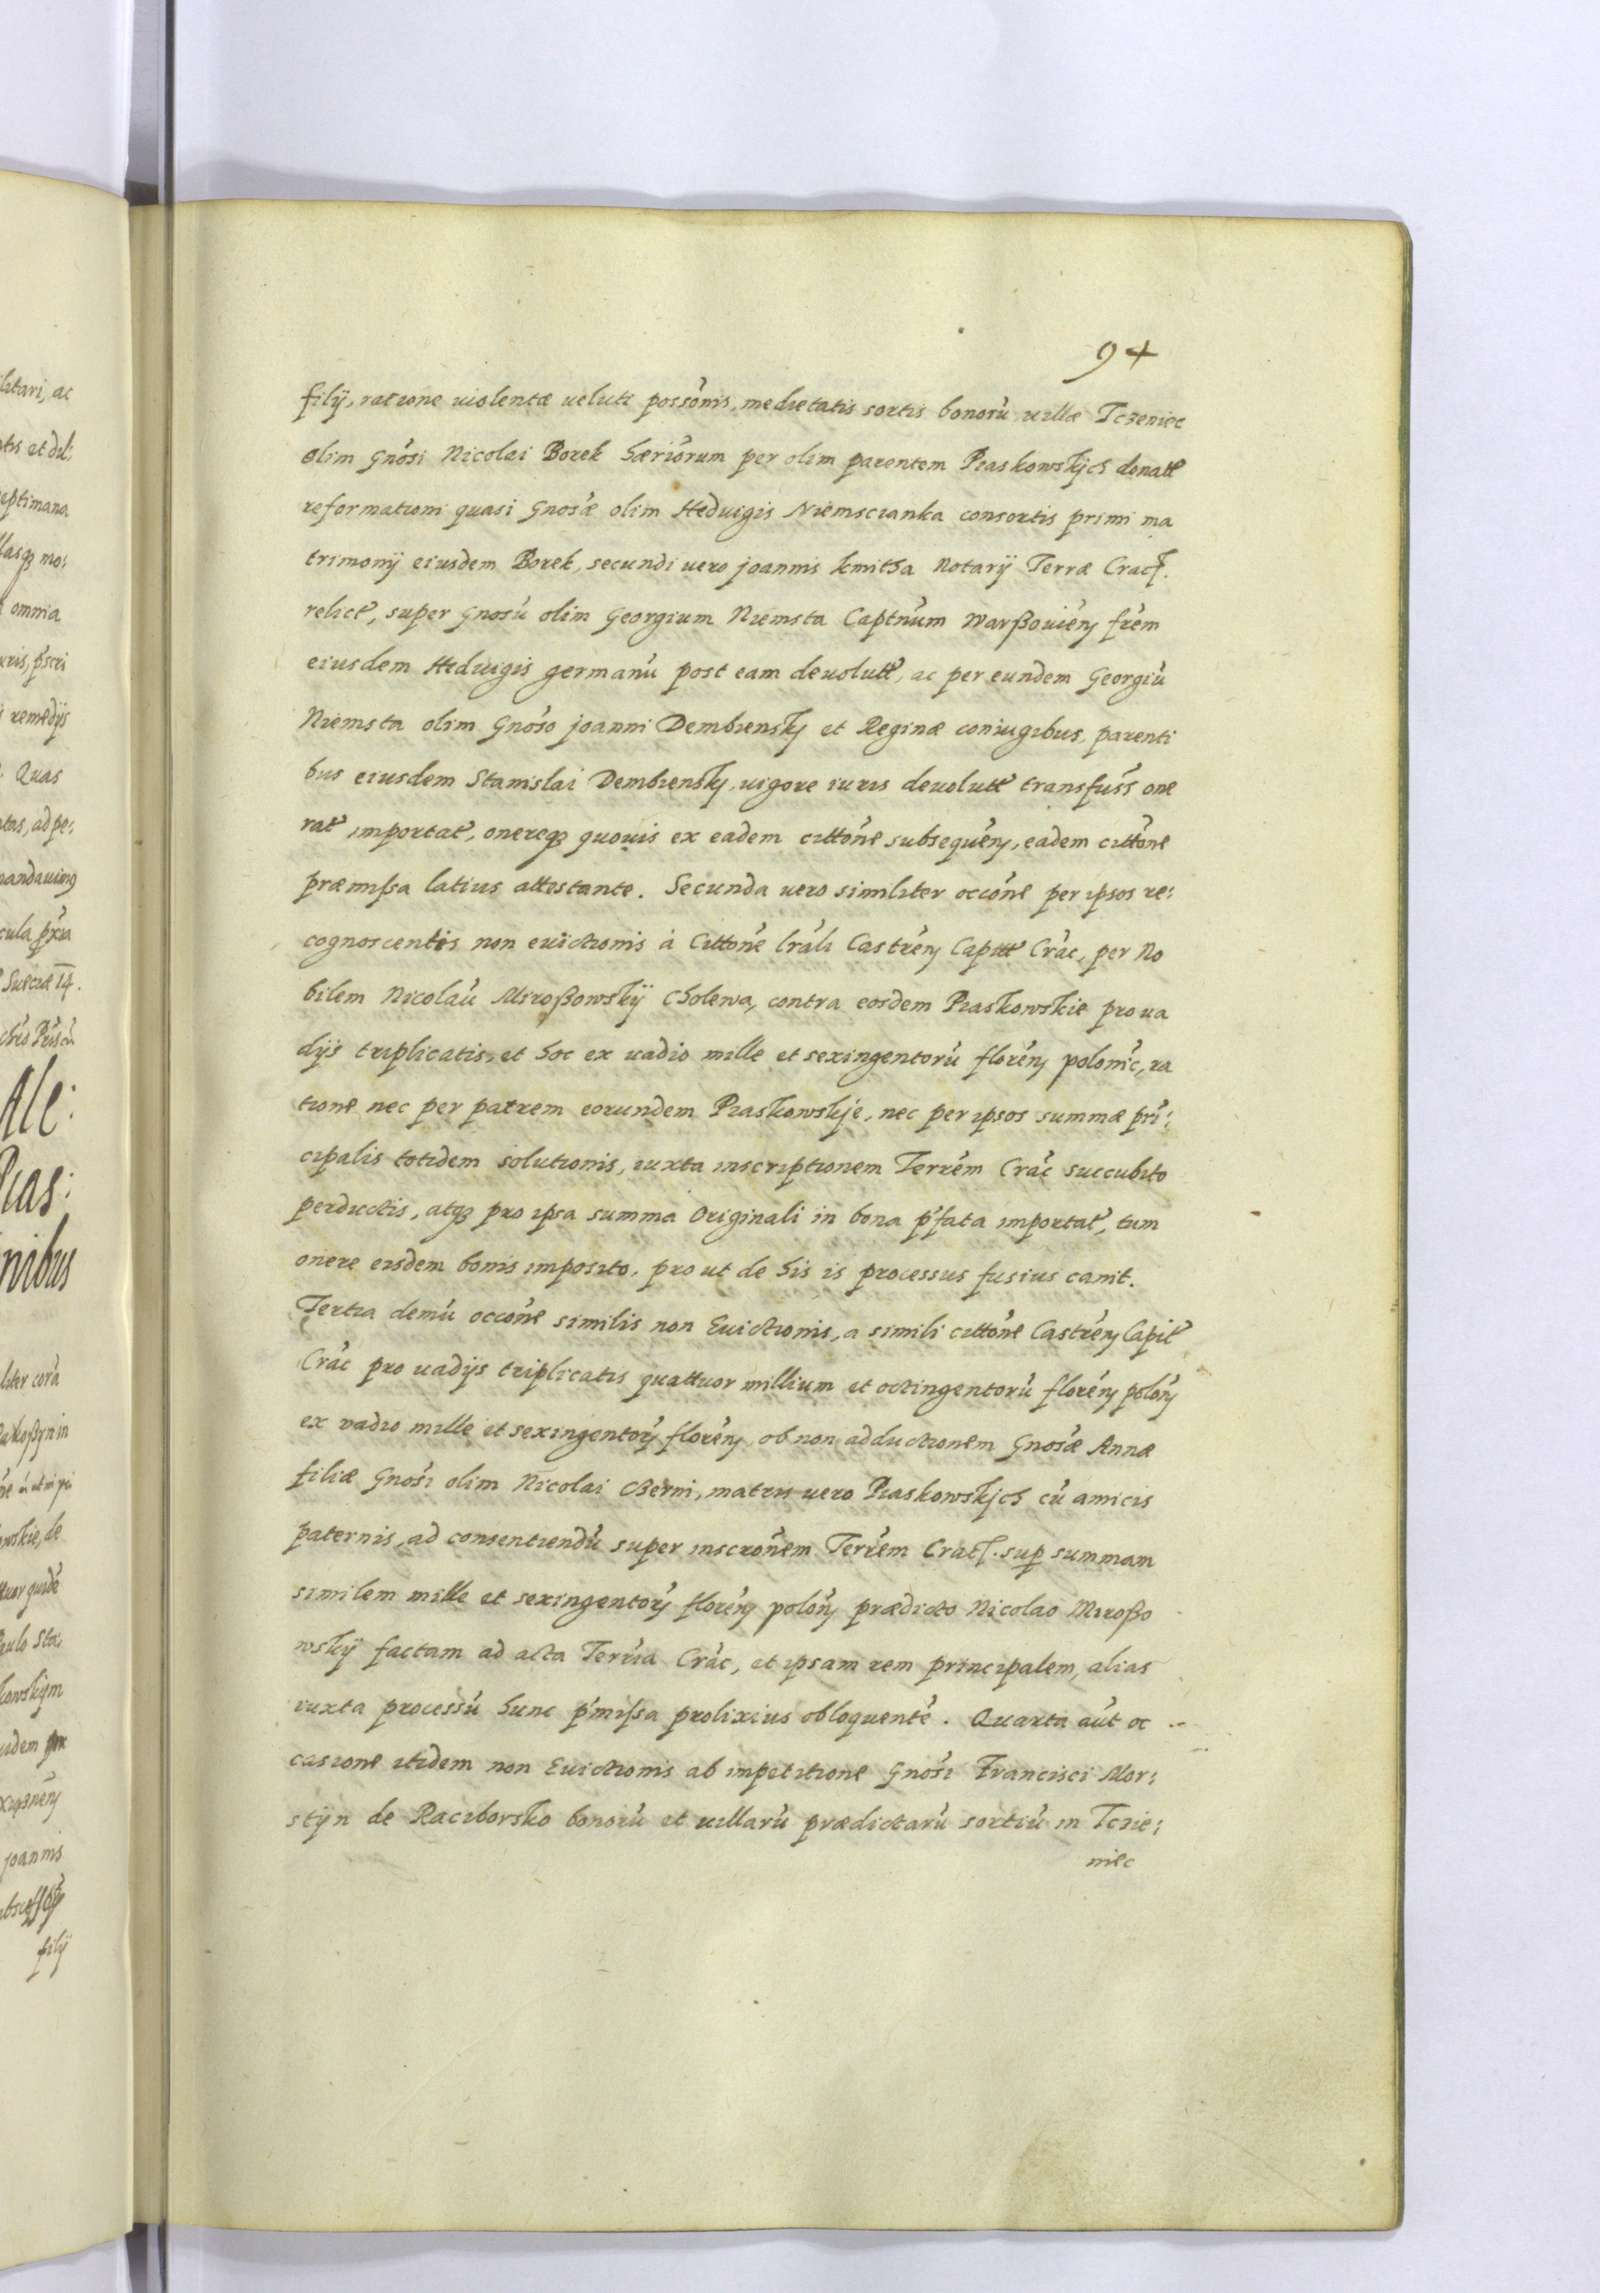 94
filÿ, ratione violentæ veluti possonis, medietatis sortis bonorũ villæ Tczeniec
olim Gnosi Nicolai Borek hæriorum per olim parentem Piaskowskjch donatt
reformationi quasi Gnosæ olim Hedvigis Niemscianka consortis primi ma
trimonÿ eiusdem Borek, secundi vero joannis kmitha Notarÿ Terræ Crac.
relict, super Gnosũ olim Georgium Niemsta Captnum Warßovien frem
eiusdem Hedvigis germanũ post eam devolutt, ac per eundem Georgiũ
Niemsta olim Gnoso joanni Dembiensky et Reginæ coniugibus, parenti
bus eiusdem Stanislai Dembiensky, vigore iuris devolutt transfuss one
rat importat, onereq₃ quovis ex eadem cittone subsequen, eadem cittone
præmissa latius attestante. Secunda vero similiter occone per ipsos re:
cognoscentes non evictionis à Cittone lrali Castren Capitt Crac, per No
bilem Nicolaũ Miroßowskÿ Cholewa, contra eosdem Piaskowskie pro va
dÿs triplicatis, et hoc ex vadio mille et sexingentorũ floren polonic, ra
tione nec per patrem eorundem Piaskowskje, nec per ipsos summæ prĩ:
cipalis totidem solutionis, iuxta inscriptionem Terrem Crac succubito
perductis, atq₃ pro ipsa summa Originali in bona pfata importat, tum
onere eisdem bonis imposito, pro ut de his is processus fusius canit.
Tertia demũ occone similis non Evictionis, a simili cittone Castren Capit
Crac pro vadÿs triplicatis quattuor millium et octingentorũ floren polon
ex vadio mille et sexingentor floren, ob non adductionem Gnosæ Annæ
filiæ Gnosi olim Nicolai Czerni, matris vero Piaskowskjch cũ amicis
paternis, ad consentiendũ super inscronem Terrem Crac. sup summam
similem mille et sexingentor floren polon prædicto Nicolao Miroßo
wskÿ factam ad acta Terria Crac, et ipsam rem principalem, alias
iuxta processũ hunc pmissa prolixius obloquente. Quarta aut oc
casione itidem non Evictionis ab impetitione Gnosi Francisci Mor:
stÿn de Raciborsko bonorũ et villarũ prædictarũ sortiũ in Tczie:
niec